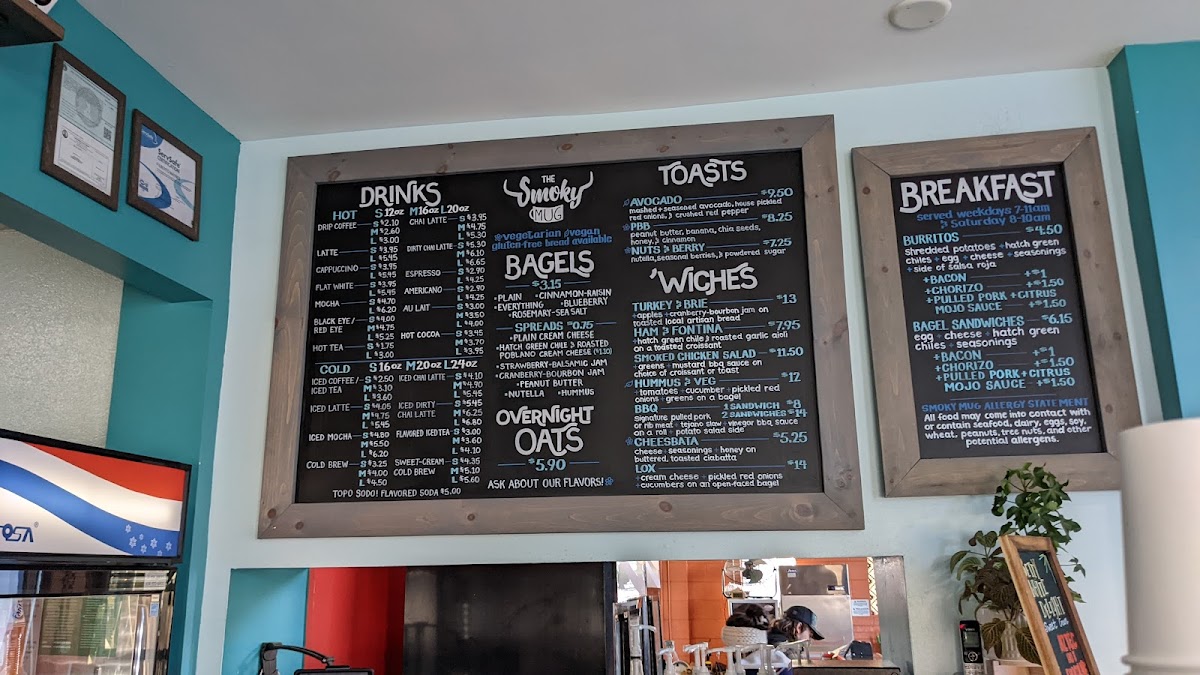 DRINKS
HOT S 12oz M 16oz L 20oz
DRIP COFFEE S $2.10
M $2.60
L $3.00
LATTE S $3.95
M $5.30
L $5.95
CAPPUCCINO S $3.95
L $5.45
FLAT WHITE S $3.95
L $5.45
MOCHA S $4.70
L $6.20
BLACK EYE/ S $4.00
RED EYE M $4.75
L $5.25
HOT TEA S $1.75
L $3.00
CHAI LATTE S $3.95
M $4.75
L $5.30
DIRTY CHAI LATTE S $5.30
M $6.10
L $6.65
ESPRESSO S $2.90
L $4.25
AMERICANO S $2.90
L $4.25
AU LAIT S $3.00
M $3.50
L $4.00
HOT COCOA S $3.95
M $3.70
L $3.95
COLD S 16oz M 20oz L 24oz
ICED COFFEE/ S $2.50
ICED TEA M $3.10
L $3.60
ICED LATTE S $4.05
M $4.75
L $5.45
ICED MOCHA S $4.80
M $5.50
L $6.20
COLD BREW S $3.25
M $4.00
L $4.50
ICED CHAI LATTE S $4.10
M $4.90
L $5.45
ICED DIRTY S $5.45
CHAI LATTE M $6.25
L $6.80
FLAVORED ICED TEA S $3.00
M $3.60
L $4.10
SWEET-CREAM S $4.35
COLD BREW M $5.10
L $5.60
TOPO SODO! FLAVORED SODA $5.00
THE
Smoky
MUG
vegetarian vegan
gluten-free bread available
BAGELS
$3.15
•PLAIN •CINNAMON-RAISIN
•EVERYTHING •BLUEBERRY
•ROSEMARY-SEA SALT
SPREADS $0.75
•PLAIN CREAM CHEESE
•HATCH GREEN CHILE & ROASTED
POBLANO CREAM CHEESE ($1.10)
•STRAWBERRY-BALSAMIC JAM
•CRANBERRY-BOURBON JAM
•PEANUT BUTTER
•NUTELLA •HUMMUS
OVERNIGHT
OATS
$5.90
ASK ABOUT OUR FLAVORS!
TOASTS
AVOCADO $9.50
mashed + seasoned avocado, house pickled
red onions, & crushed red pepper
PBB $8.25
peanut butter, banana, chia seeds,
honey, & cinnamon
NUTS & BERRY $7.25
nutella, seasonal berries, & powdered sugar
'WICHES
TURKEY & BRIE $13
+apples +cranberry-bourbon jam on
toasted local artisan bread
HAM & FONTINA $7.95
+hatch green chile & roasted garlic aioli
on a toasted croissant
SMOKED CHICKEN SALAD $11.50
+greens + mustard bbq sauce on
choice of croissant or toast
HUMMUS & VEG $12
+tomatoes + cucumber + pickled red
onions + greens on a bagel
BBQ 1 SANDWICH $8
signature pulled pork 2 SANDWICHES $14
or rib meat + tejano slaw + vinegar bbq sauce
on a roll + potato salad side
CHEESBATA $5.25
cheese + seasonings + honey on
buttered, toasted ciabatta
LOX $14
+cream cheese + pickled red onions
+cucumbers on an open-faced bagel
BREAKFAST
served weekdays 7-11am
& Saturday 8-10am
BURRITOS $4.50
shredded potatoes + hatch green
chiles + egg + cheese + seasonings
+ side of salsa roja
+BACON +$1
+CHORIZO +$1.50
+PULLED PORK + CITRUS
MOJO SAUCE +$1.50
BAGEL SANDWICHES $6.15
egg + cheese + hatch green
chiles + seasonings
+BACON +$1
+CHORIZO +$1.50
+PULLED PORK + CITRUS
MOJO SAUCE +$1.50
SMOKY MUG ALLERGY STATEMENT
All food may come into contact with
or contain seafood, dairy, eggs, soy,
wheat, peanuts, tree nuts, and other
potential allergens.
ServSafe